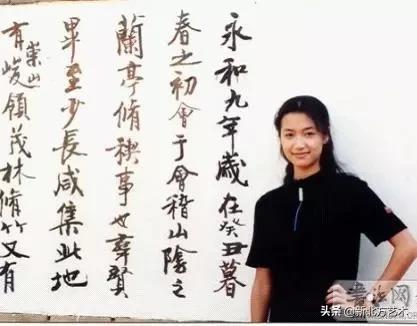 永和九年歲在癸丑暮
春之初會于會稽山陰之
蘭亭脩稧事也羣賢
畢至少長咸集此地
有崇山峻領茂林脩竹又有
書法网
头条 @新北方艺术